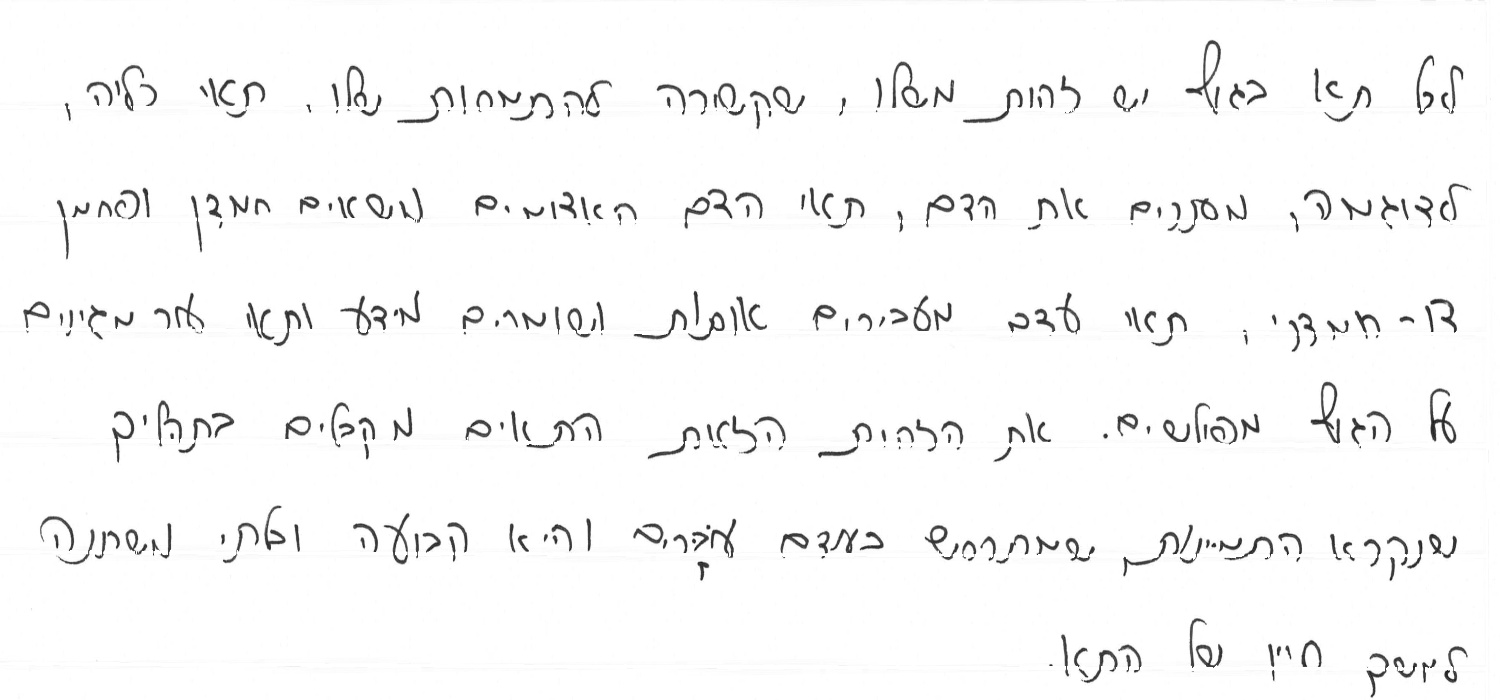 לכל תא בגוף יש זהות משלו, שקשורה להתמחות שלו. תאי כליה,
לדוגמה, מסננים את הדם, תאי הדם האדומים נושאים חמצן ופחמן
דו-חמצני, תאי עצב מעבירים אותות ושומרים מידע ותאי עור מגינים
על הגוף מפולשים. את הזהות הזאת התאים מקבלים בתהליך
שנקרא התמיינות, שמתרחש בעודם עוברים והיא קבועה ובלתי משתנה
למשך חייו של התא.